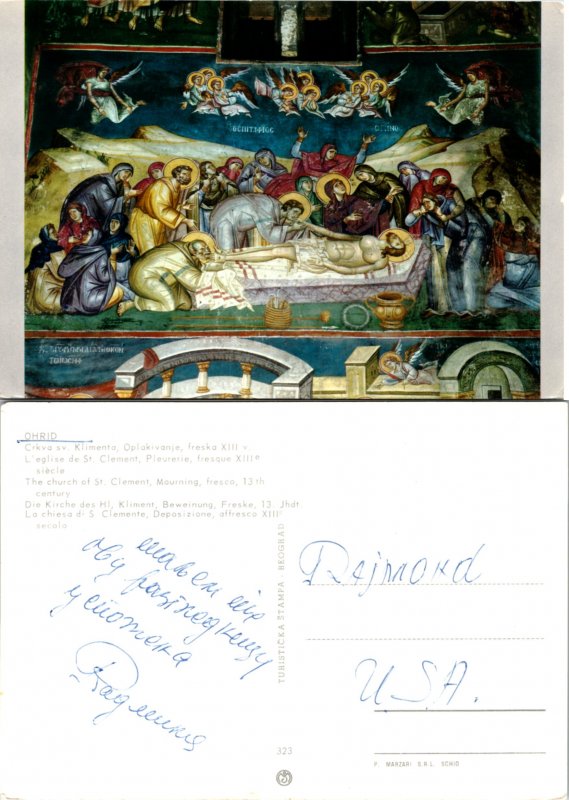 OHRID
Crkva sv. Klimenta, Oplakivanje, freska XIII v.
L'eglise de St. Clement, Pleurerie, fresque XIIIe
siècle
The church of St. Clement, Mourning, fresco, 13th
century
Die Kirche des Hl. Kliment, Beweinung, Freske, 13. Jhdt
La chiesa di S. Clemente, Deposizione, affresco XIII
secolo
шаљем
ову разгледницу
у спомена
Радмила
TURISTIČKA ŠTAMPA BEOGRAD
Rejmond
USA.
323
P. MARZARI S.R.L. SCHIO